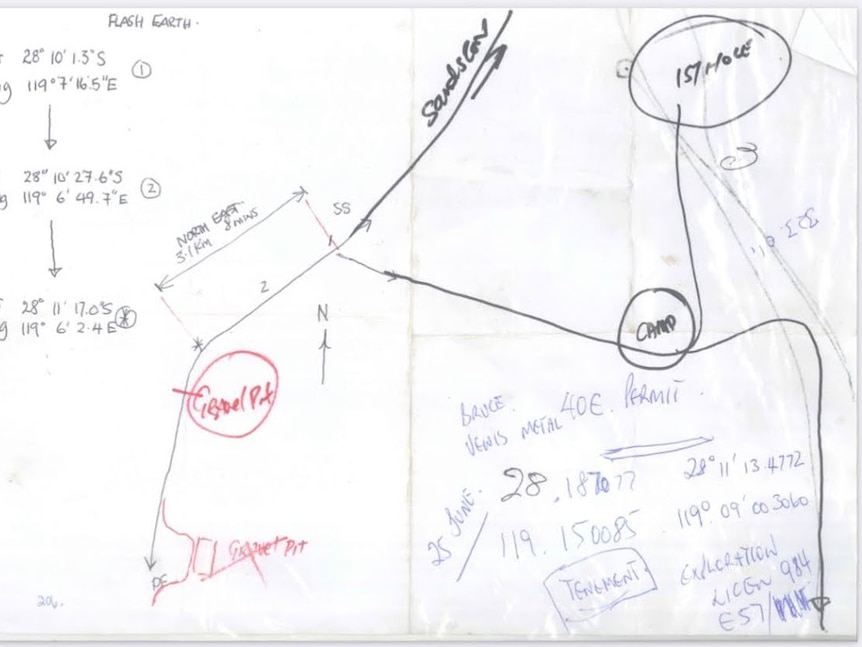 FLASH EARTH.
28° 10' 1.3"S
119° 7' 16.5"E
1
28° 10' 27.6"S
119° 6' 49.7"E
2
28° 11' 17.0"S
119° 6' 2.4"E
*
NORTH EAST
3.1 KM 8 MINS
SS
1
2
N
Sandstone
157 HOLE
CAMP
Gravel Pit
Gravel Pit
BRUCE.
VENUS METAL 40E. PERMIT.
25 JUNE.
28.187077
28° 11' 13.4772
119.150085
119° 09' 00.3060
TENEMENT
EXPLORATION
984
E57/
206.